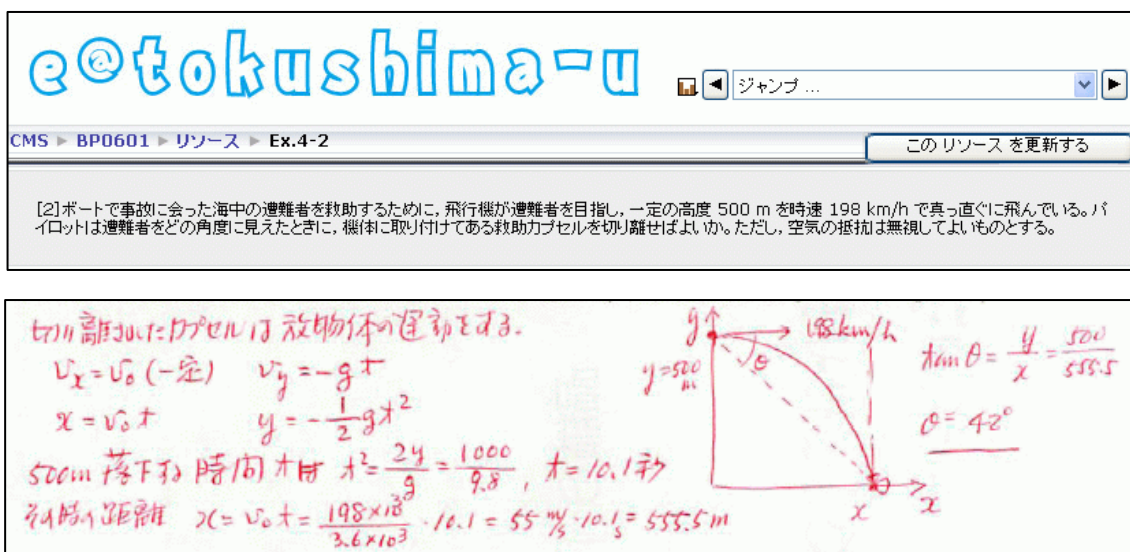 e@tokushima-u
ジャンプ ...
CMS ▶ BP0601 ▶ リソース ▶ Ex.4-2
この リソース を更新する
[2]ボートで事故に会った海中の遭難者を救助するために，飛行機が遭難者を目指し，一定の高度 500 m を時速 198 km/h で真っ直ぐに飛んでいる。パ
イロットは遭難者をどの角度に見えたときに，機体に取り付けてある救助カプセルを切り離せばよいか。ただし，空気の抵抗は無視してよいものとする。
切り離されたカプセルは放物体の運動をする。
v_x = v_0 (一定) v_y = -gt
x = v_0 t y = -1/2 gt^2
500m 落下する時間 t は t^2 = 2y/g = 1000/9.8 , t = 10.1秒
その時の距離 x = v_0 t = 198×10^3/3.6×10^3 · 10.1 = 55 m/s · 10.1 s = 555.5 m
y
198 km/h
θ
y=500
m
x
x
tan θ = y/x = 500/555.5
θ = 42°